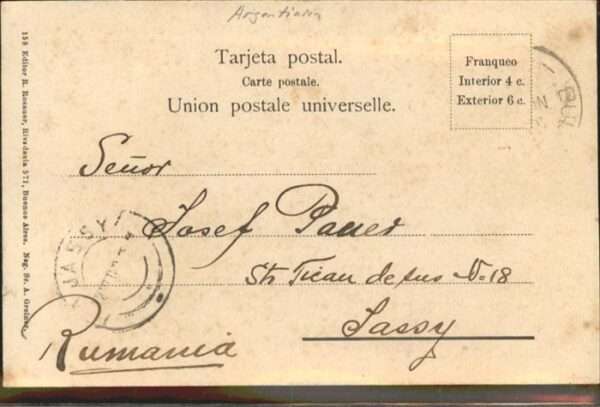 Argentinien
Tarjeta postal.
Carte postale.
Union postale universelle.
Franqueo
Interior 4 c.
Exterior 6 c.
158 Editor R. Rosauer, Rivadavia 571, Buenos Aires. Neg. Sr. A.
Señor
Josef
Str. de sus No 18
Jassy
Rumania
JASSY